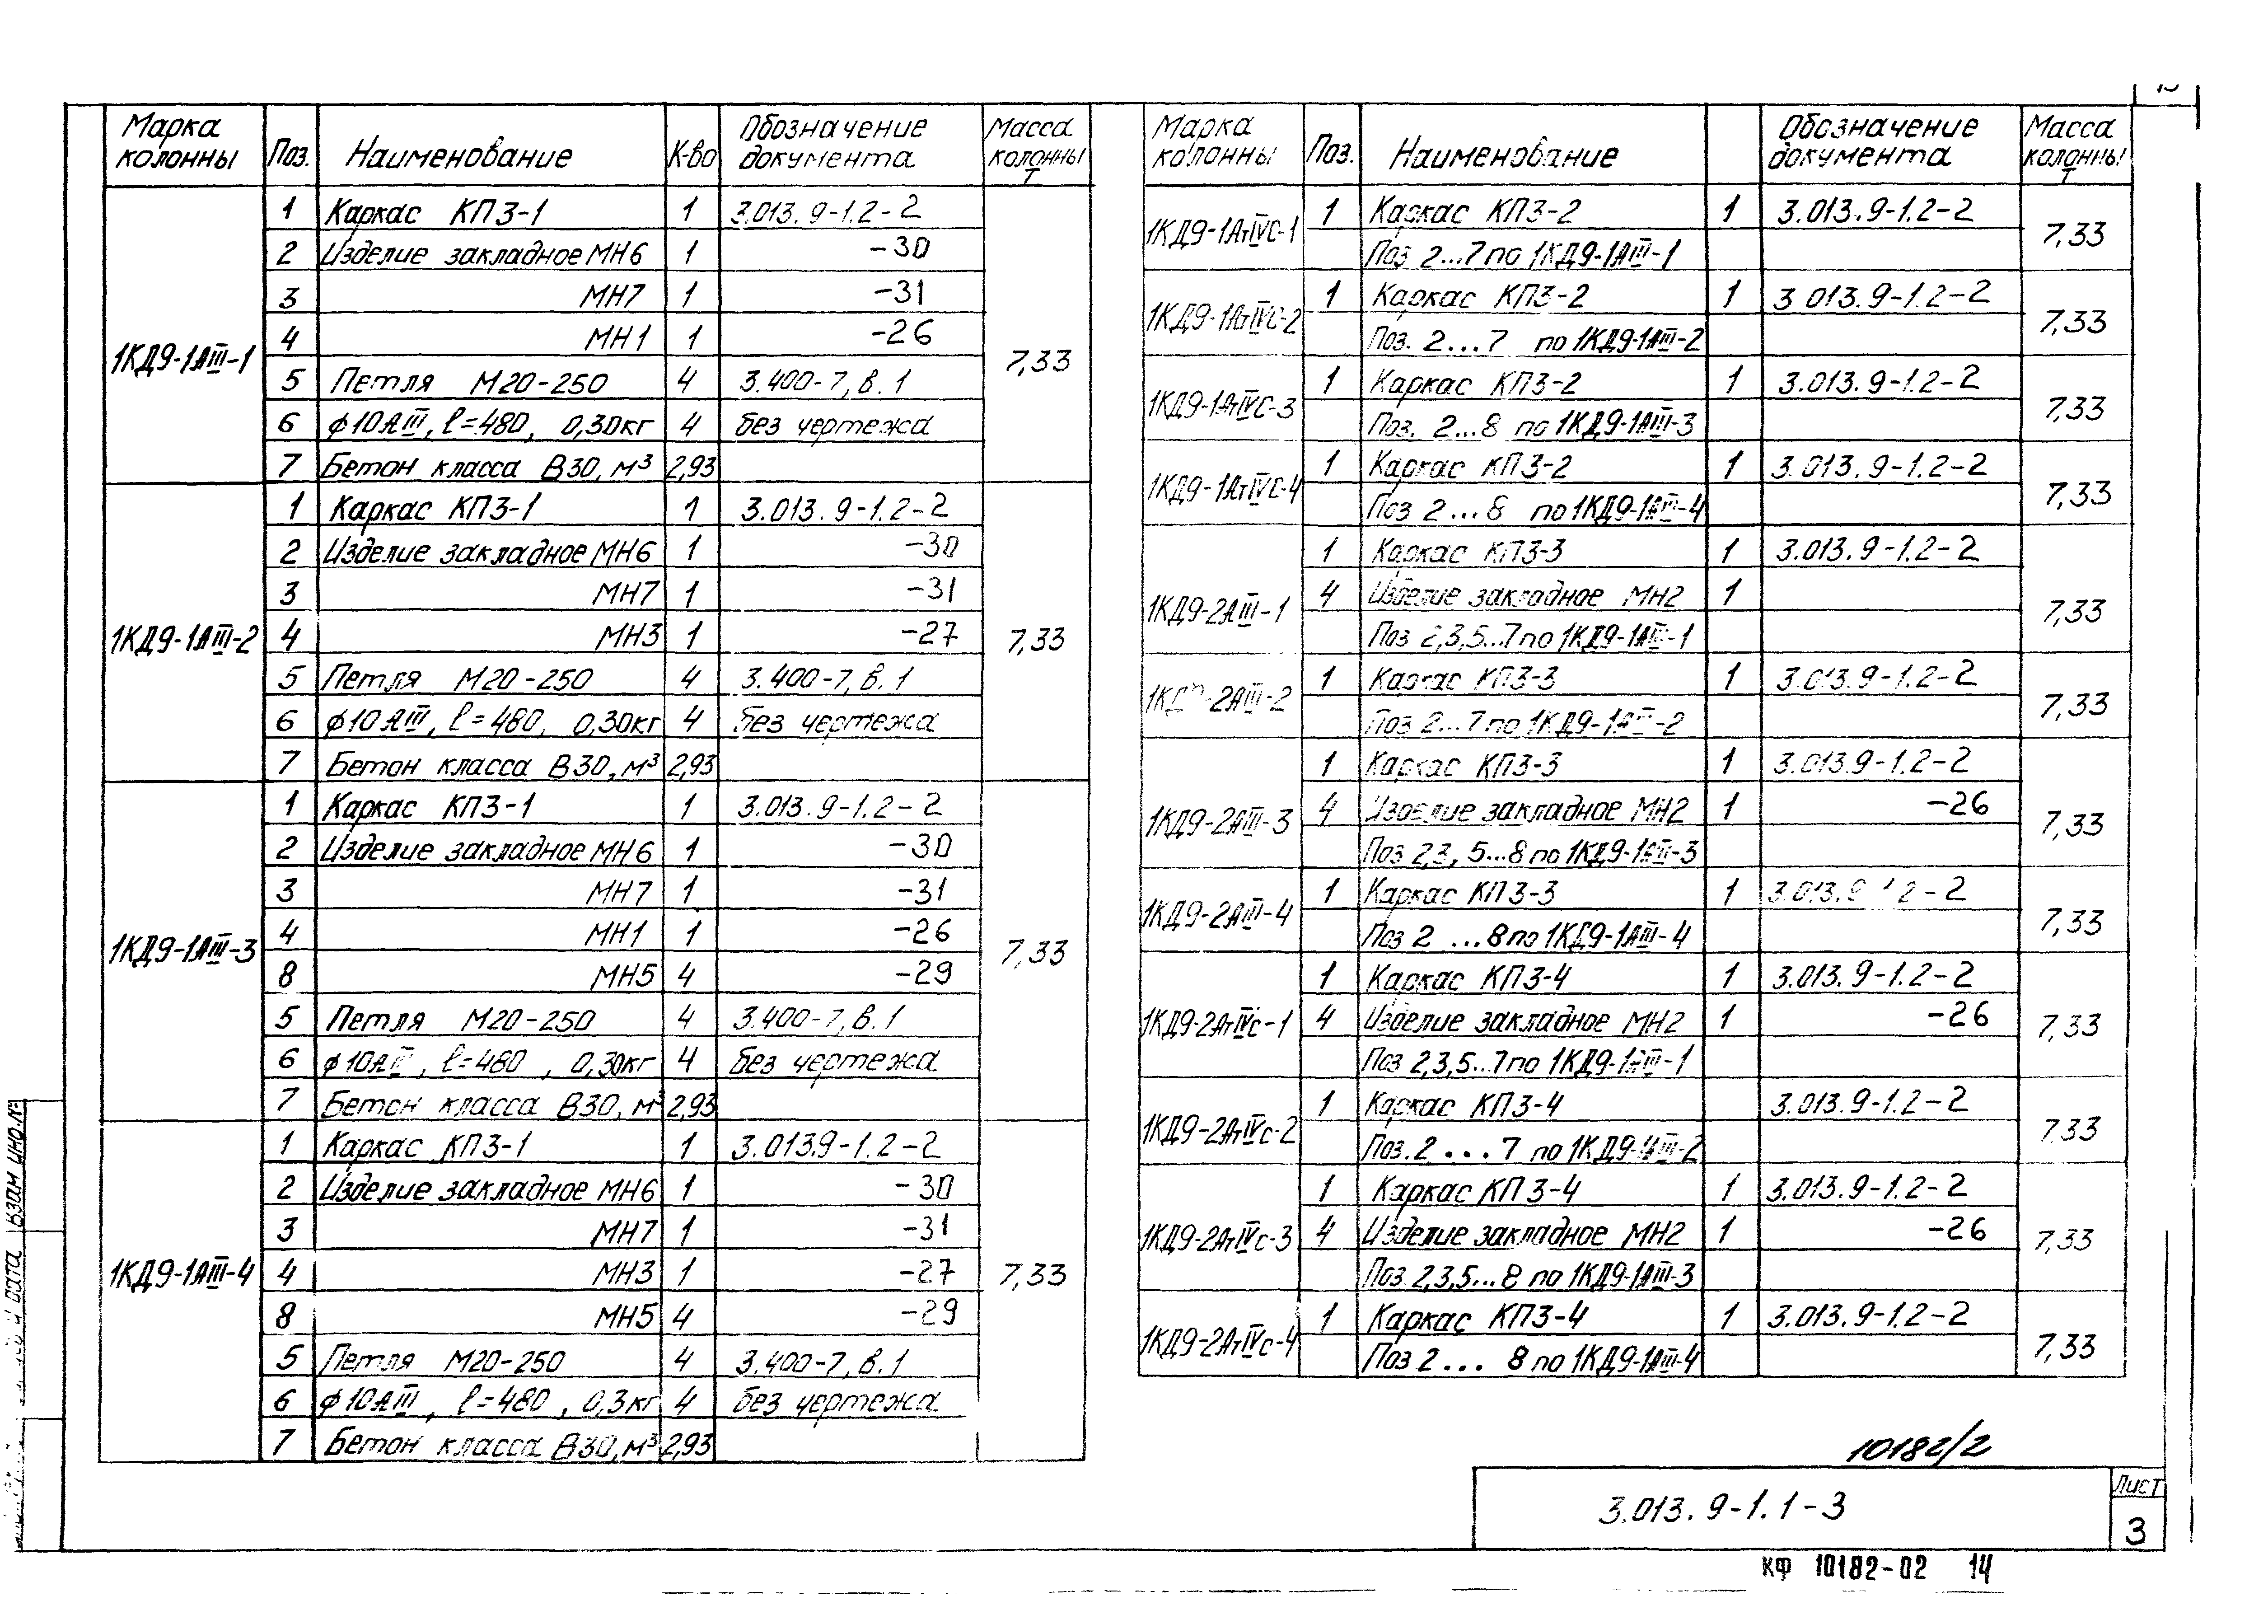 Марка колонны Поз. Наименование К-во Обозначение документа Масса колонны т
1КД9-1АIII-1 7,33
1 Каркас КП3-1 1 3.013.9-1.2-2
2 Изделие закладное МН6 1 -30
3 МН7 1 -31
4 МН1 1 -26
5 Петля М20-250 4 3.400-7, в.1
6 ϕ10АIII, ℓ=480, 0,30кг 4 без чертежа
7 Бетон класса В30, м³ 2,93
1КД9-1АIII-2 7,33
1 Каркас КП3-1 1 3.013.9-1.2-2
2 Изделие закладное МН6 1 -30
3 МН7 1 -31
4 МН3 1 -27
5 Петля М20-250 4 3.400-7, в.1
6 ϕ10АIII, ℓ=480, 0,30кг 4 без чертежа
7 Бетон класса В30, м³ 2,93
1КД9-1АIII-3 7,33
1 Каркас КП3-1 1 3.013.9-1.2-2
2 Изделие закладное МН6 1 -30
3 МН7 1 -31
4 МН1 1 -26
8 МН5 4 -29
5 Петля М20-250 4 3.400-7, в.1
6 ϕ10АIII, ℓ=480, 0,30кг 4 без чертежа
7 Бетон класса В30, м³ 2,93
1КД9-1АIII-4 7,33
1 Каркас КП3-1 1 3.013.9-1.2-2
2 Изделие закладное МН6 1 -30
3 МН7 1 -31
4 МН3 1 -27
8 МН5 4 -29
5 Петля М20-250 4 3.400-7, в.1
6 ϕ10АIII, ℓ=480, 0,3кг 4 без чертежа
7 Бетон класса В30, м³ 2,93
Марка колонны Поз. Наименование Обозначение документа Масса колонны т
1КД9-1АтIVС-1 7,33
1 Каркас КП3-2 1 3.013.9-1.2-2
Поз 2...7 по 1КД9-1АIII-1
1КД9-1АтIVС-2 7,33
1 Каркас КП3-2 1 3 013.9-1.2-2
Поз. 2...7 по 1КД9-1АIII-2
1КД9-1АтIVС-3 7,33
1 Каркас КП3-2 1 3.013.9-1.2-2
Поз. 2...8 по 1КД9-1АIII-3
1КД9-1АтIVС-4 7,33
1 Каркас КП3-2 1 3.013.9-1.2-2
Поз 2...8 по 1КД9-1АIII-4
1КД9-2АIII-1 7,33
1 Каркас КП3-3 1 3.013.9-1.2-2
4 Изделие закладное МН2 1
Поз 2,3,5...7 по 1КД9-1АIII-1
1КД9-2АIII-2 7,33
1 Каркас КП3-3 1 3.013.9-1.2-2
Поз 2...7 по 1КД9-1АIII-2
1КД9-2АIII-3 7,33
1 Каркас КП3-3 1 3.013.9-1.2-2
4 Изделие закладное МН2 1 -26
Поз 2,3, 5...8 по 1КД9-1АIII-3
1КД9-2АIII-4 7,33
1 Каркас КП3-3 1 3.013.9-1.2-2
Поз 2 ...8 по 1КД9-1АIII-4
1КД9-2АтIVс-1 7,33
1 Каркас КП3-4 1 3.013.9-1.2-2
4 Изделие закладное МН2 1 -26
Поз 2,3,5...7 по 1КД9-1АIII-1
1КД9-2АтIVс-2 7,33
1 Каркас КП3-4 3.013.9-1.2-2
Поз.2 ... 7 по 1КД9-1АIII-2
1КД9-2АтIVс-3 7,33
1 Каркас КП3-4 1 3.013.9-1.2-2
4 Изделие закладное МН2 1 -26
Поз. 2,3,5...8 по 1КД9-1АIII-3
1КД9-2АтIVс-4 7,33
1 Каркас КП3-4 1 3.013.9-1.2-2
Поз 2 ... 8 по 1КД9-1АIII-4
10182/2
3.013.9-1.1-3
Лист
3
КФ 10182-02 14
Взам инв.№
дата